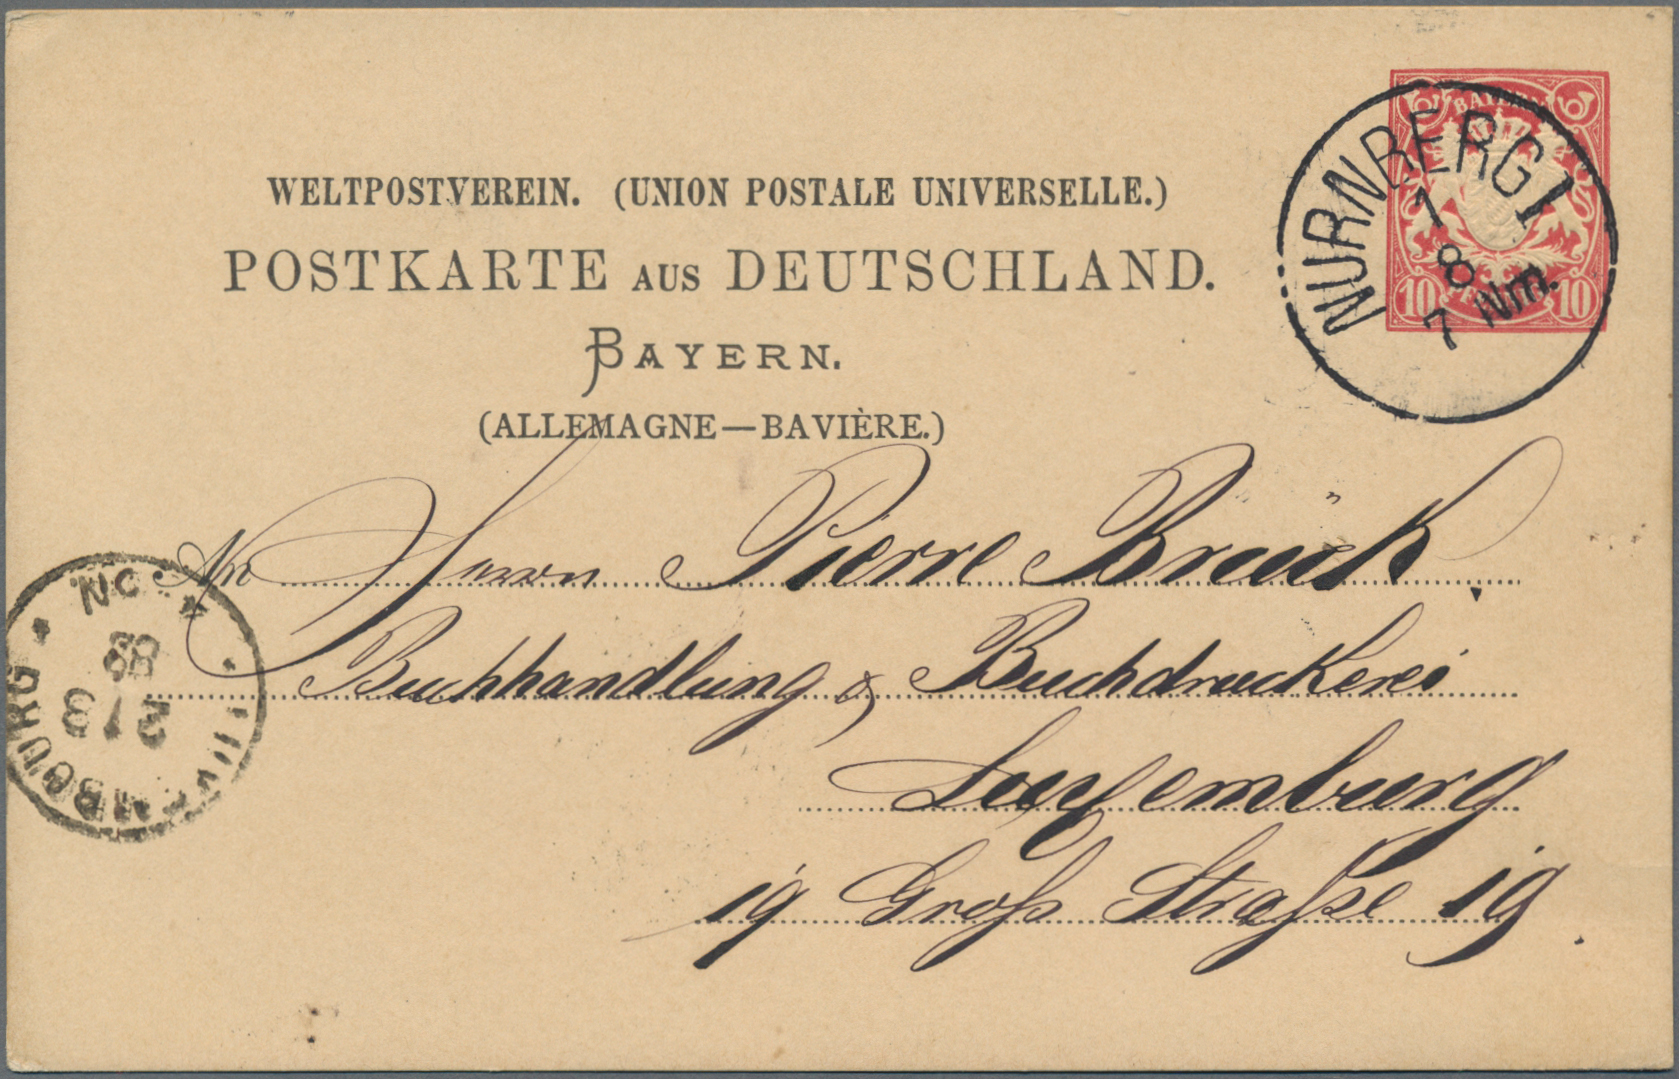 WELTPOSTVEREIN. (UNION POSTALE UNIVERSELLE.)
POSTKARTE AUS DEUTSCHLAND.
BAYERN.
(ALLEMAGNE—BAVIÈRE.)
BAYERN
10 PFENNIG 10
NÜRNBERG I
1
8
7 Nm.
An Herrn Pierre Brück
Buchhandlung & Buchdruckerei
Luxemburg
19 Groß Straße 19